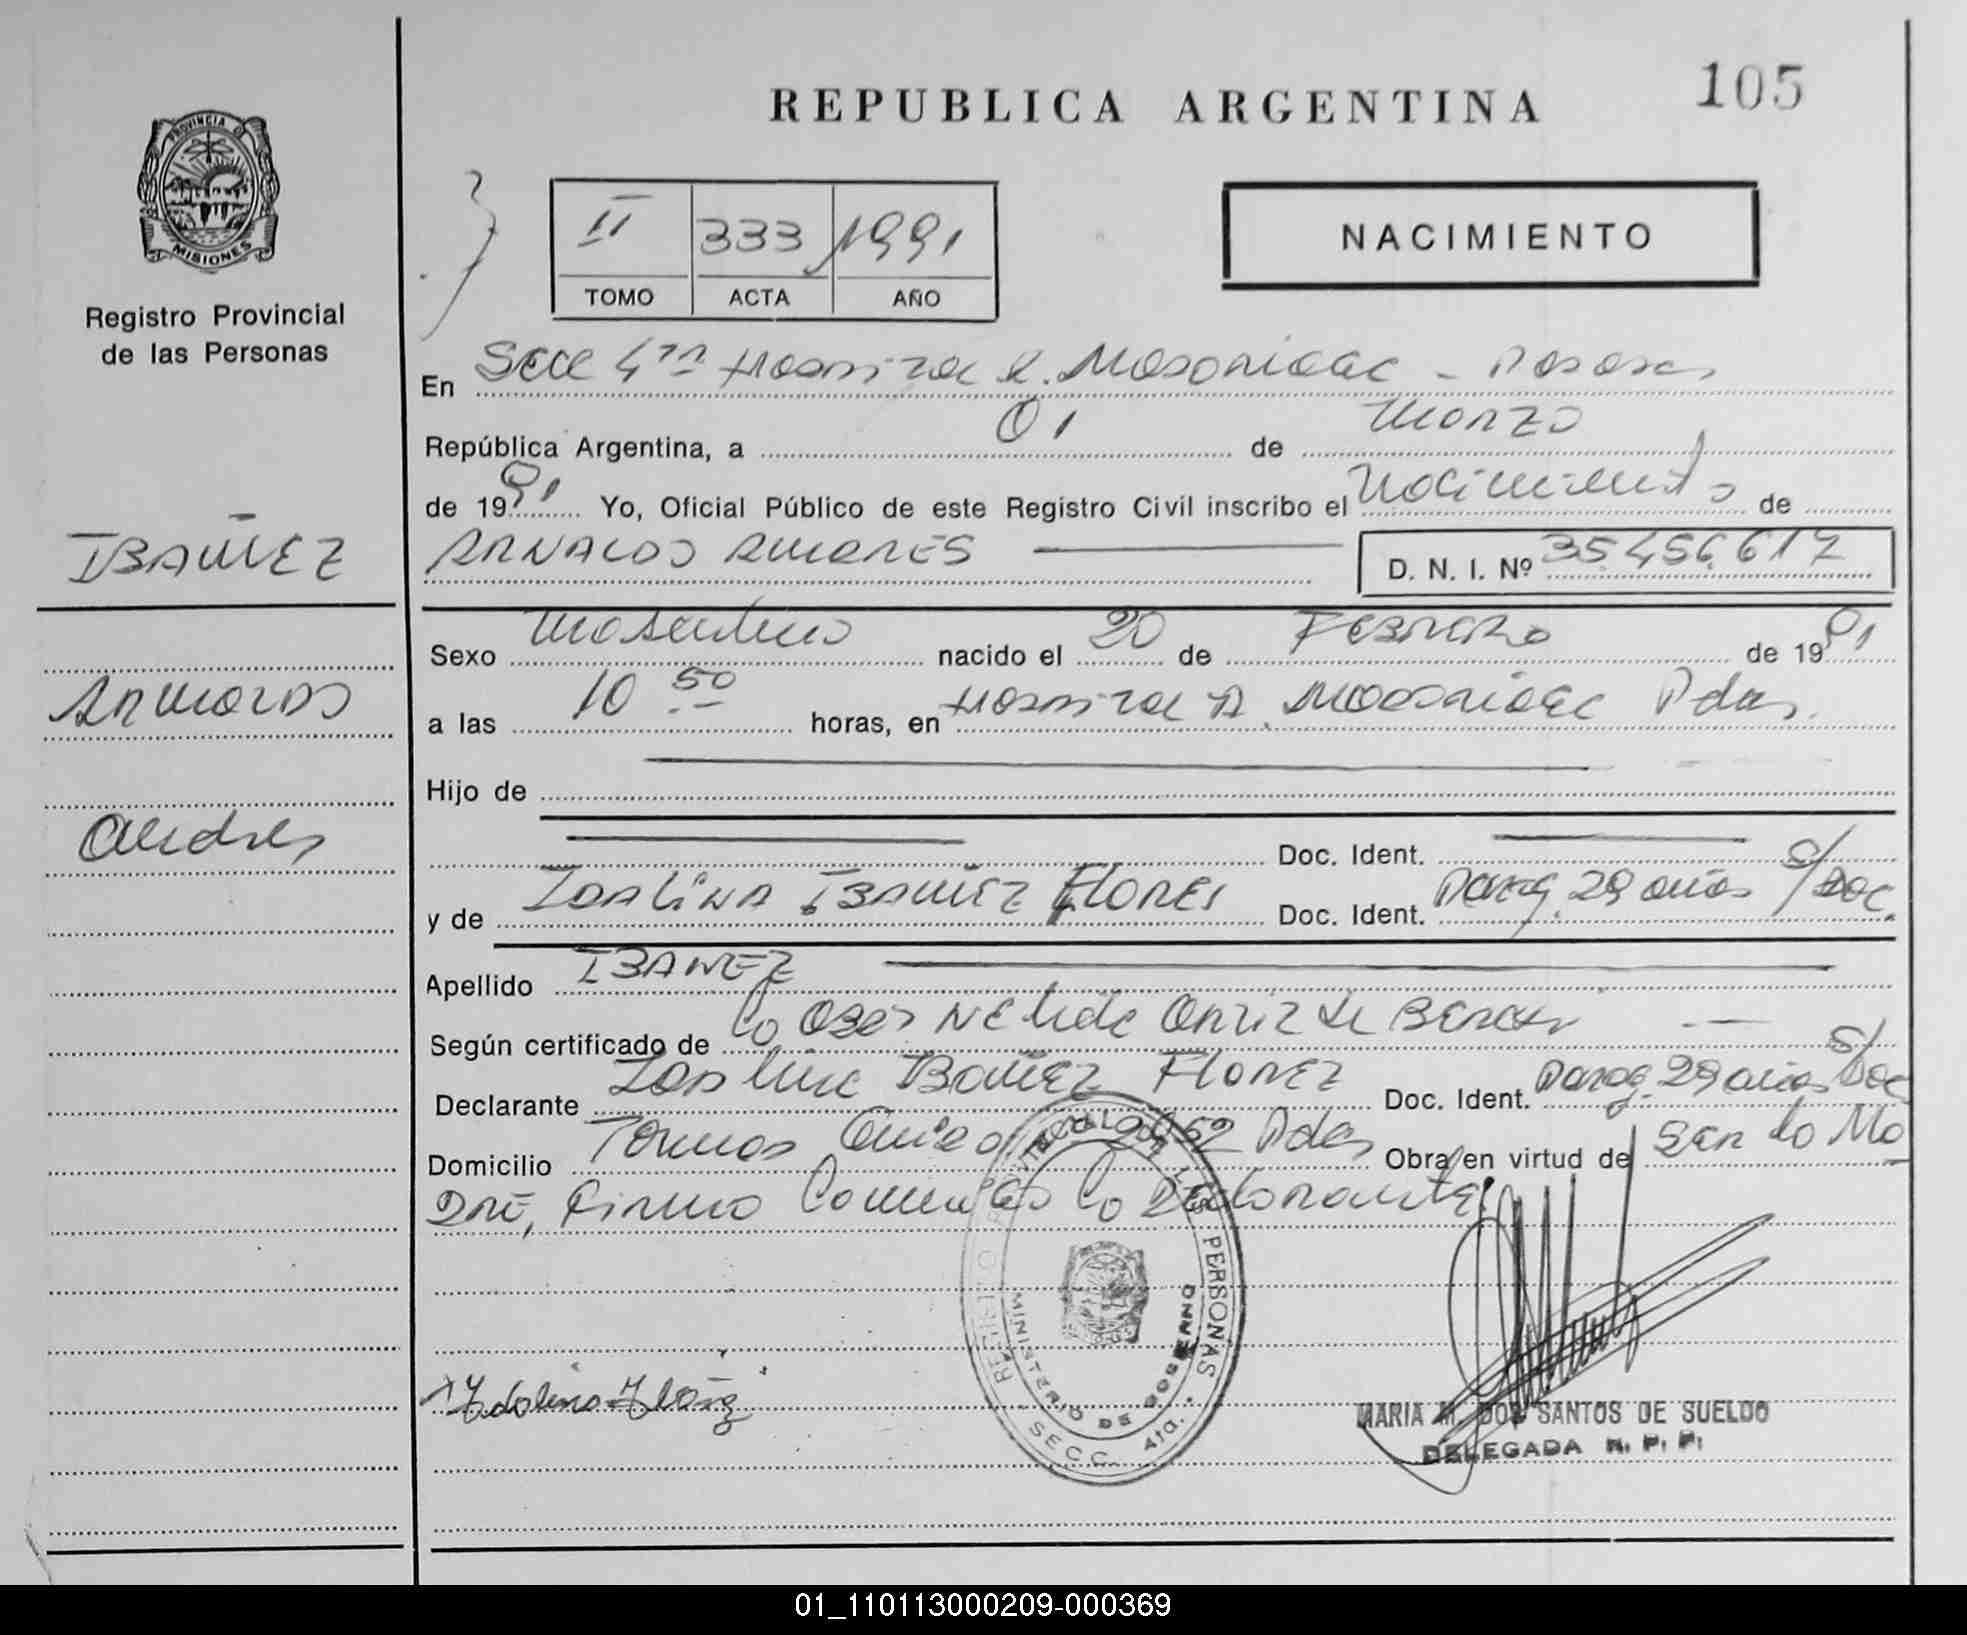 PROVINCIA DE
MISIONES
Registro Provincial
de las Personas
IBAÑEZ
Andres
REPUBLICA ARGENTINA
105
II 333 1991
TOMO ACTA AÑO
NACIMIENTO
En Secc 4ta Hospital R. Madariaga - Posadas
República Argentina, a 01 de Marzo
de 1991 Yo, Oficial Público de este Registro Civil inscribo el Nacimiento de
ARNALDO ANDRES D. N. I. Nº 35.456.617
Sexo Masculino nacido el 20 de Febrero de 1991
a las 10 50 horas, en Hospital R. Madariaga Pdas.
Hijo de
Doc. Ident.
y de IDALINA IBAÑEZ FLORES Doc. Ident. Parag. 29 años S/Doc.
Apellido IBAÑEZ
Según certificado de la Obst Nelida Ortiz de
Declarante Idalina Ibañez Florez Doc. Ident. Parag. 29 años S/Doc
Domicilio Pdas Obra en virtud de Ser la Ma
dre, Firma la Declarante
REGISTRO PROVINCIAL DE LAS PERSONAS
MINISTERIO DE GOBIERNO
SECC. 4ta.
Idalina
MARIA M. DOS SANTOS DE SUELDO
DELEGADA R. P. P.
01_110113000209-000369